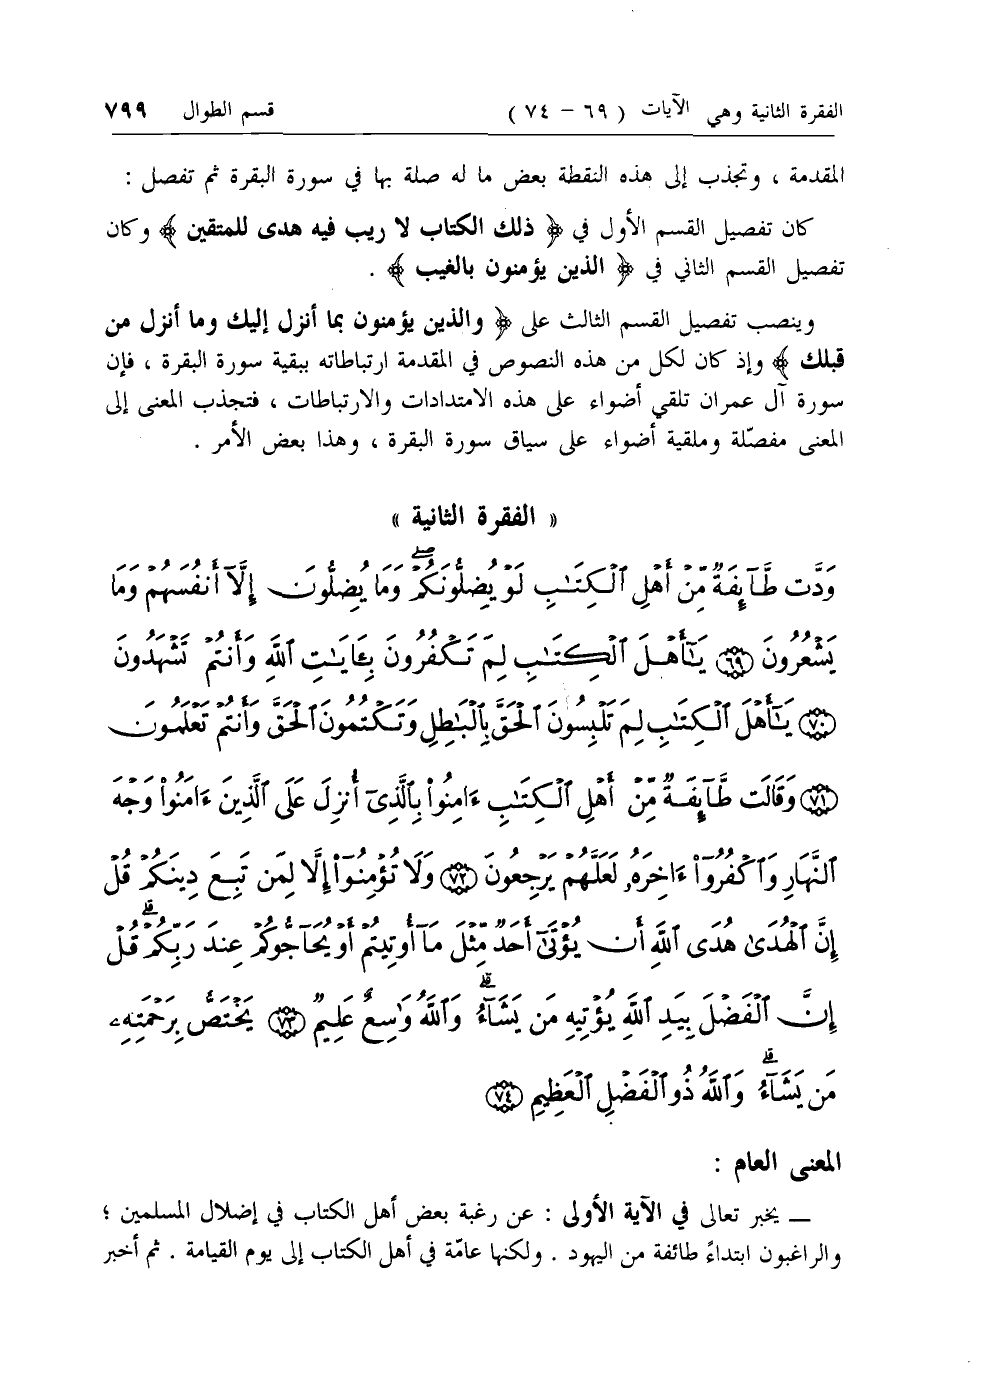 الفقرة الثانية وهي الآيات ( ٦٩ – ٧٤ ) قسم الطوال ٧٩٩
المقدمة ، وتجذب إلى هذه النقطة بعض ما له صلة بها في سورة البقرة ثم تفصل :
كان تفصيل القسم الأول في ﴿ ذلك الكتاب لا ريب فيه هدى للمتقين ﴾ وكان
تفصيل القسم الثاني في ﴿ الذين يؤمنون بالغيب ﴾ .
وينصب تفصيل القسم الثالث على ﴿ والذين يؤمنون بما أنزل إليك وما أنزل من
قبلك ﴾ وإذ كان لكل من هذه النصوص في المقدمة ارتباطاته ببقية سورة البقرة ، فإن
سورة آل عمران تلقي أضواء على هذه الامتدادات والارتباطات ، فتجذب المعنى إلى
المعنى مفصّلة وملقية أضواء على سياق سورة البقرة ، وهذا بعض الأمر .
« الفقرة الثانية »
وَدَّت طَّآئِفَةٌ مِّنْ أَهْلِ ٱلْكِتَٰبِ لَوْ يُضِلُّونَكُمْ ۖ وَمَا يُضِلُّونَ إِلَّآ أَنفُسَهُمْ وَمَا
يَشْعُرُونَ ﴿٦٩﴾ يَٰٓأَهْلَ ٱلْكِتَٰبِ لِمَ تَكْفُرُونَ بِـَٔايَٰتِ ٱللَّهِ وَأَنتُمْ تَشْهَدُونَ
﴿٧٠﴾ يَٰٓأَهْلَ ٱلْكِتَٰبِ لِمَ تَلْبِسُونَ ٱلْحَقَّ بِٱلْبَٰطِلِ وَتَكْتُمُونَ ٱلْحَقَّ وَأَنتُمْ تَعْلَمُونَ
﴿٧١﴾ وَقَالَت طَّآئِفَةٌ مِّنْ أَهْلِ ٱلْكِتَٰبِ ءَامِنُوا۟ بِٱلَّذِىٓ أُنزِلَ عَلَى ٱلَّذِينَ ءَامَنُوا۟ وَجْهَ
ٱلنَّهَارِ وَٱكْفُرُوٓا۟ ءَاخِرَهُۥ لَعَلَّهُمْ يَرْجِعُونَ ﴿٧٢﴾ وَلَا تُؤْمِنُوٓا۟ إِلَّا لِمَن تَبِعَ دِينَكُمْ قُلْ
إِنَّ ٱلْهُدَىٰ هُدَى ٱللَّهِ أَن يُؤْتَىٰٓ أَحَدٌ مِّثْلَ مَآ أُوتِيتُمْ أَوْ يُحَآجُّوكُمْ عِندَ رَبِّكُمْ ۗ قُلْ
إِنَّ ٱلْفَضْلَ بِيَدِ ٱللَّهِ يُؤْتِيهِ مَن يَشَآءُ ۗ وَٱللَّهُ وَٰسِعٌ عَلِيمٌ ﴿٧٣﴾ يَخْتَصُّ بِرَحْمَتِهِۦ
مَن يَشَآءُ ۗ وَٱللَّهُ ذُو ٱلْفَضْلِ ٱلْعَظِيمِ ﴿٧٤﴾
المعنى العام :
ـــ يخبر تعالى في الآية الأولى : عن رغبة بعض أهل الكتاب في إضلال المسلمين ؛
والراغبون ابتداءً طائفة من اليهود . ولكنها عامّة في أهل الكتاب إلى يوم القيامة . ثم أخبر